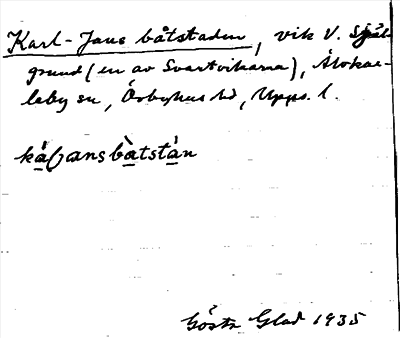 Karl-Jans båtstaden, vik V. Själ-
grund (en av Svartvikarna), Älvkar-
leby sn, Örbyhus hd, Upps. l.
bàtstán
Gösta Glad 1935